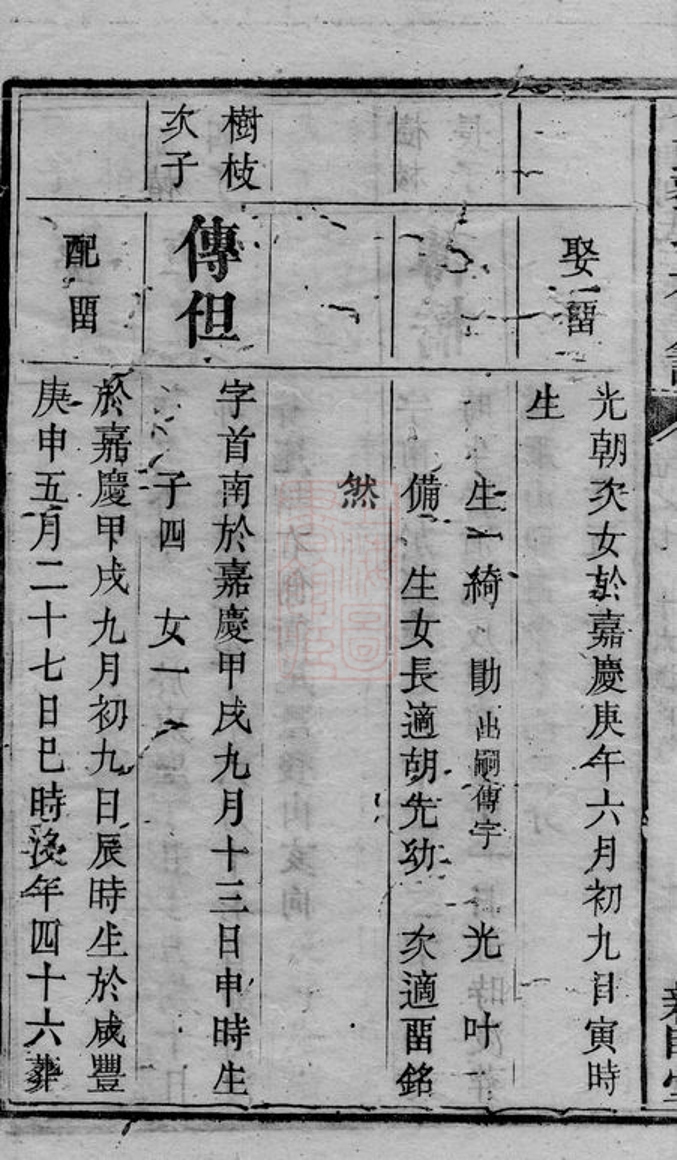 娶㽞
光朝次女於嘉慶庚午六月初九日寅時
生
生一綺 勛出嗣傳宇 光 叶
備 生女長適胡先功 次適㽞銘
然
樹枝
次子
傳但
字首南於嘉慶甲戌九月十三日申時生
子四 女一
配㽞
於嘉慶甲戌九月初九日辰時生於咸豐
庚申五月二十七日巳時沒年四十六葬